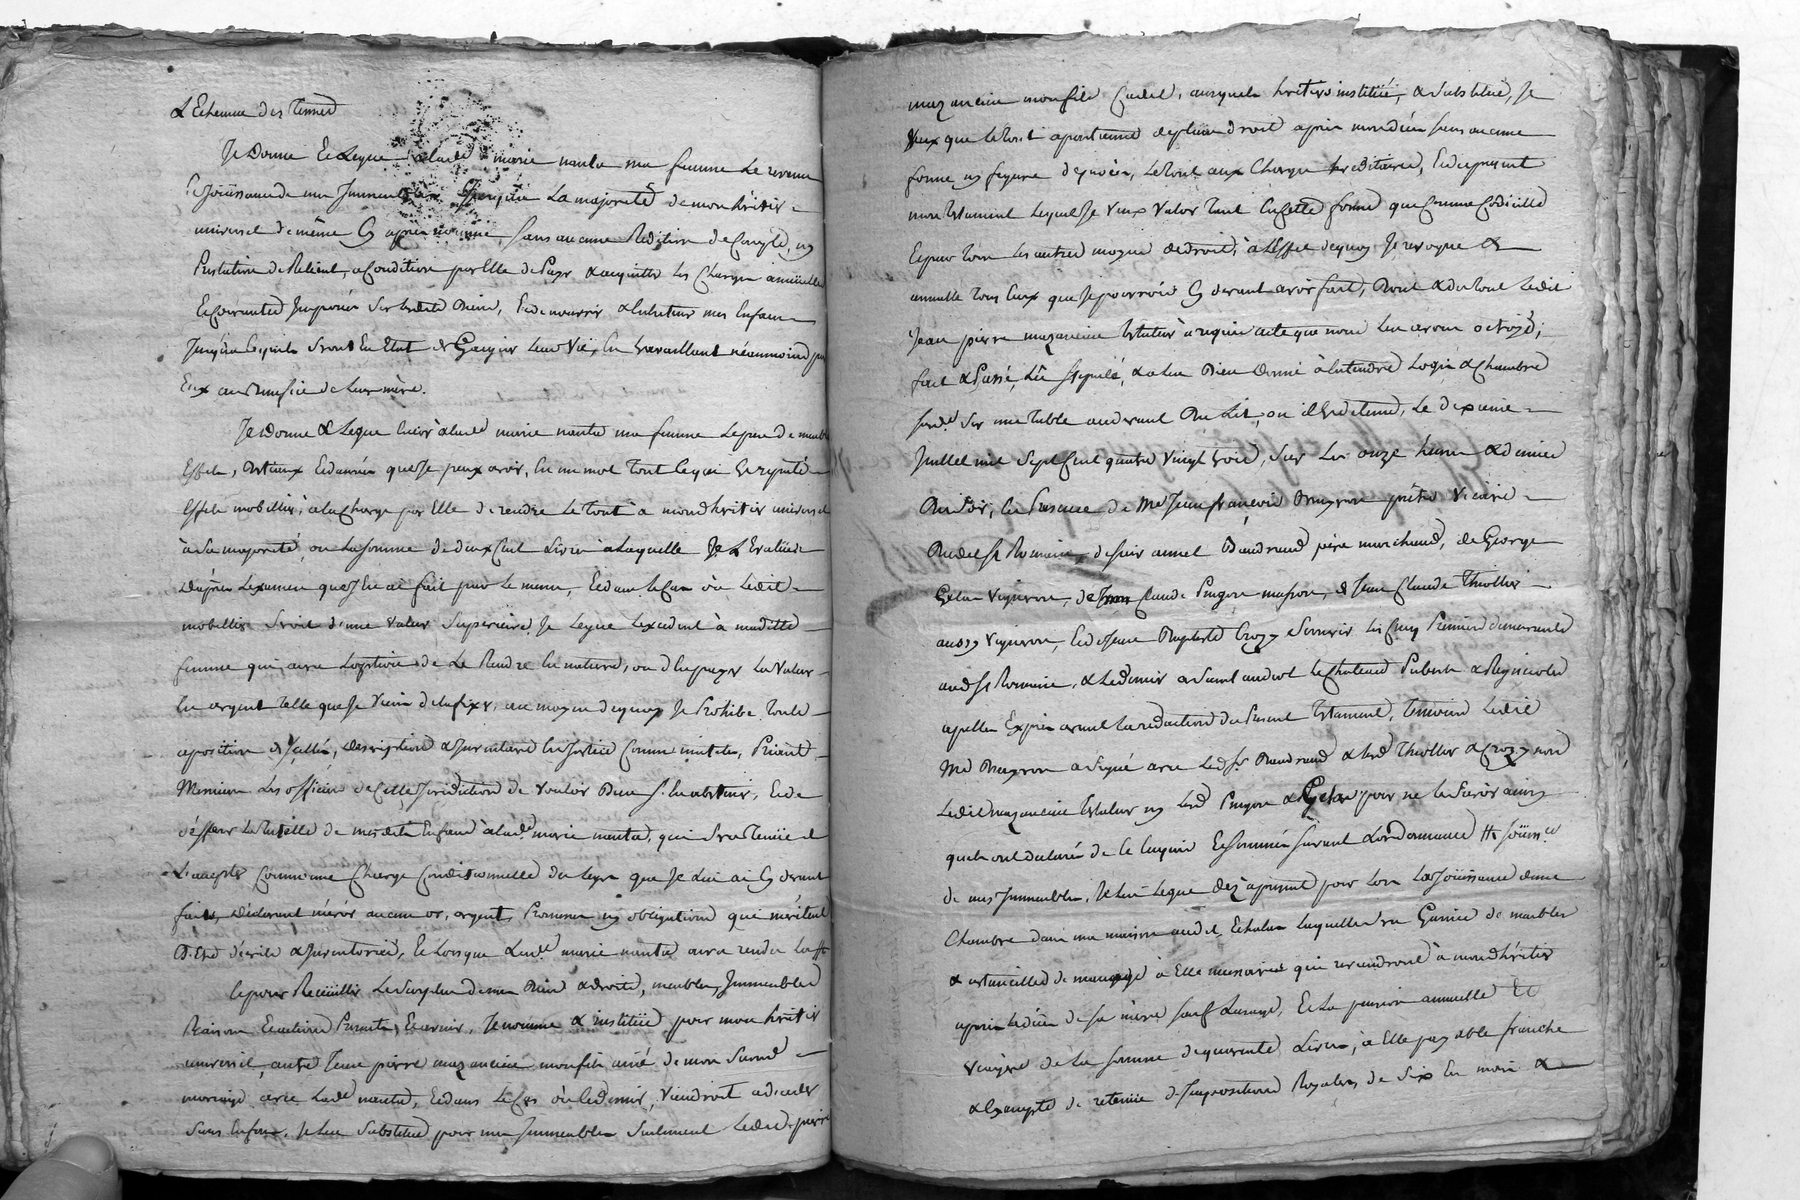 & Echeance des termes
Je Donne Et Legue a lad.e marie nanta ma femme Le revenu
Et Joüissance de mes Immeubles Jusqu'à La majorité de mon héritier
universel de même Cy après nommé, sans aucune Redition de Compte, ny
Prestation de Reliquat, a Condition par Elle de Payer & acquitter les Charges annüelles
Et Courantes Imposées sur lesdits Biens, Et de nourrir & Entretenir mes Enfans
Jusqu'à ce qu'ils soient En Etat de Gagner Leur Vie, En travaillant néanmoins par
Eux au Benefice de Leur mère.
Je Donne & Legue Encor à lad.e marie nanta ma femme Le peu de meubles
Effets, Bestiaux Et denrées que Je peux avoir, En un mot Tout Ce qui Est reputé
Effets mobiliers, à la Charge par Elle de rendre Le Tout à mondit héritier universel
à sa majorité, ou La somme de deux Cent Livres à Laquelle Je L'Evalüe
d'après L'examen que J'En ai fait par le menu, Et dans le Cas où Ledit
mobilier seroit d'une valeur Supérieure, Je Legue L'excedent à madite
femme qui aura L'option de Le Rendre En nature, ou d'En payer La valeur
En argent telle que Je viens de la fixer, au moyen de quoy Je Prohibe Toute
aposition de scellés, description & Inventaire En Justice Comme inutiles, Priant
Messieurs Les officiers de Cette Jurisdiction de vouloir Bien s'En abstenir, Et de
déférer La Tutelle de mesdits Enfans à lad.e marie nanta, qui sera Tenüe de
L'accepter Comme une Charge Conditionnelle du Legs que Je Lui ai Cy devant
fait, Déclarant n'avoir aucun or, argent, Promesses ny obligations qui méritent
D'Etre décrits & Inventoriés, Et Lorsque Lad.e marie nanta aura rendu La #
Et pour Recüeillir Le Surplus de mes Biens & droits, meubles, Immeubles
Raisons Et actions Presents, Et avenir, Je nomme & institüe pour mon héritier
universel, autre Jean pierre mazancieu mon fils ainé de mon Second
mariage avec Lad.e nanta, Et dans Le Cas où Ce dernier, viendroit a deceder
Sans Enfans, Je Lui Substitue pour mes Immeubles Seulement Ledit pierre
mazancieu mon fils Cadet, auxquels héritiers institüé, & substitué, Je
veux que Le Tout apartienne de plein droit après mon décès sans aucune
forme ny figure de procès, Le Tout aux Charges héréditaires, Et de present
mon testament Lequel Je veux valoir Tant En Cette forme que Comme Codicille
Et par Tous Les autres moyens de droit, à L'Effet de quoy Je revoque &
annulle Tous Ceux que Je pourrois Cy devant avoir fait, Dont & du tout Ledit
Jean pierre mazancieu testateur a requis acte que nous Lui avons octroyé,
fait & Passé, Lû Stipulé, & a Lui Bien Donné à Entendre Logis & Chambre
sur une table au devant Du Lit, où il Est detenu, Le dixieme
Juillet mil Sept Cent quatre vingt trois, sur Les onze heures & demie
Du Soir, En Presence de M.re Jean françois Brayron prêtre Vicaire
Dudit S.t Romain, de sieur annet Baudrand père marchand, de George
Gelas vigneron, de Claude Pingon masson, de Jean Claude Thiollier
aussy vigneron, Et de Jean Baptiste Crozy Serrurier Les Cinq Premiers demeurants
aud. S.t Romain, & Le dernier a Saint andeol Le Chateau Puberes & Regnicoles
apellés Exprès avant La rédaction du Present testament, Temoins Ledit
M.re Brayron a signé avec Led. S.r Baudrand & Les d. Thiollier & Crozy non
Ledit mazancieu testateur ny Lesd. Pingon & Gelas pour ne le savoir ainsy
qu'ils ont déclaré de Ce Enquis Et sommés suivant L'ordonnance # Joüiss.ce
de mes Immeubles, Je Lui Legue dez à present pour Lors La Joüissance d'une
Chambre dans ma maison aud. Echalas Laquelle sera Garnie de meubles
& ustancilles de menage à Elle necessaires qui reviendront à mondit héritier
après Le décès de sa mère sauf L'usage, Et La pension annuelle Et
viagere de La somme de quarante Livres, à Elle payable franche
& Exempte de retenüe d'Impositions Royales, de six En six mois &